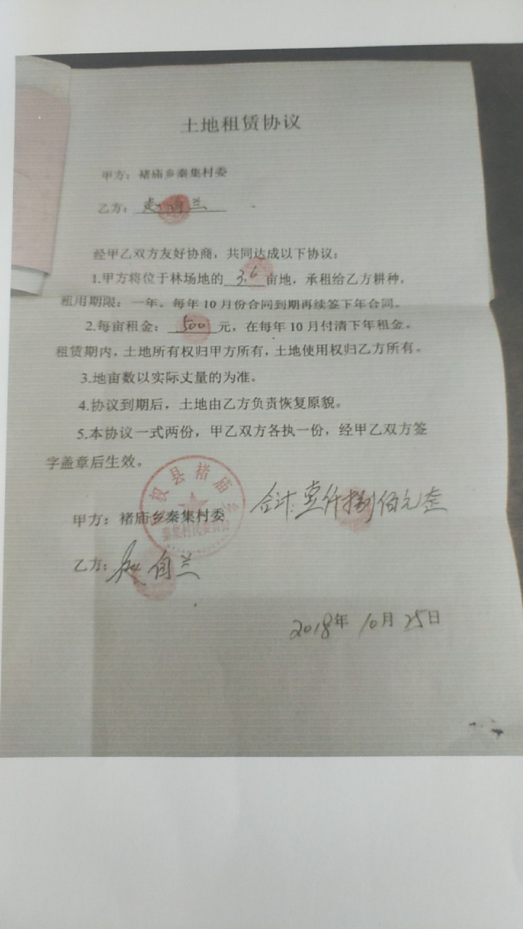 土地租赁协议
甲方：褚庙乡秦集村委
乙方：赵自兰
经甲乙双方友好协商，共同达成以下协议：
1.甲方将位于林场地的 3.6 亩地，承租给乙方耕种，
租用期限：一年。每年10月份合同到期再续签下年合同。
2.每亩租金： 500 元，在每年10月付清下年租金。
租赁期内，土地所有权归甲方所有，土地使用权归乙方所有。
3.地亩数以实际丈量的为准。
4.协议到期后，土地由乙方负责恢复原貌。
5.本协议一式两份，甲乙双方各执一份，经甲乙双方签
字盖章后生效。
权县褚庙
合计：壹仟捌佰元整
甲方：褚庙乡秦集村委
秦集村民委员会
乙方：赵自兰
2018年10月25日